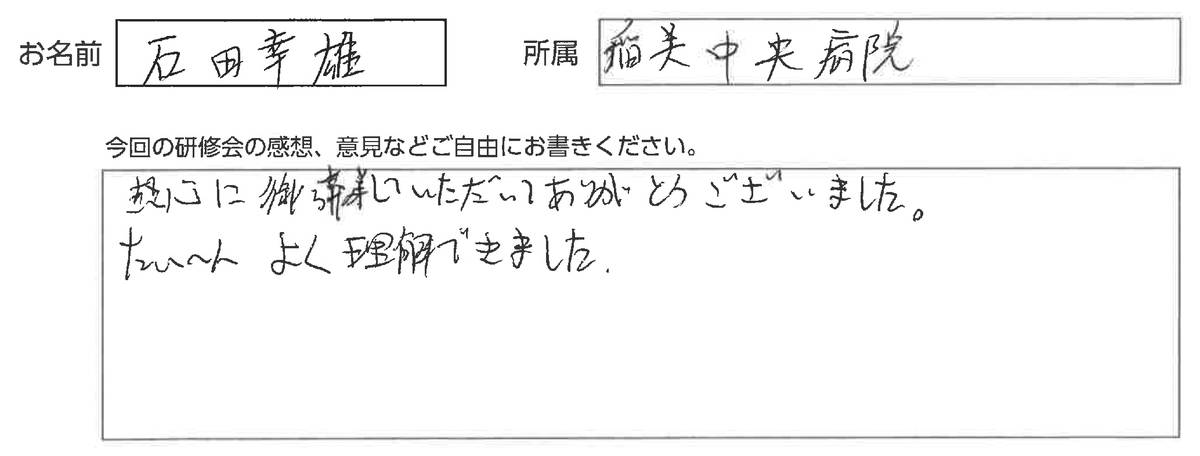 お名前 石田幸雄 所属 稲美中央病院
今回の研修会の感想、意見などご自由にお書きください。
熱心に御講義していただいてありがとうございました。
たいへん よく理解できました.